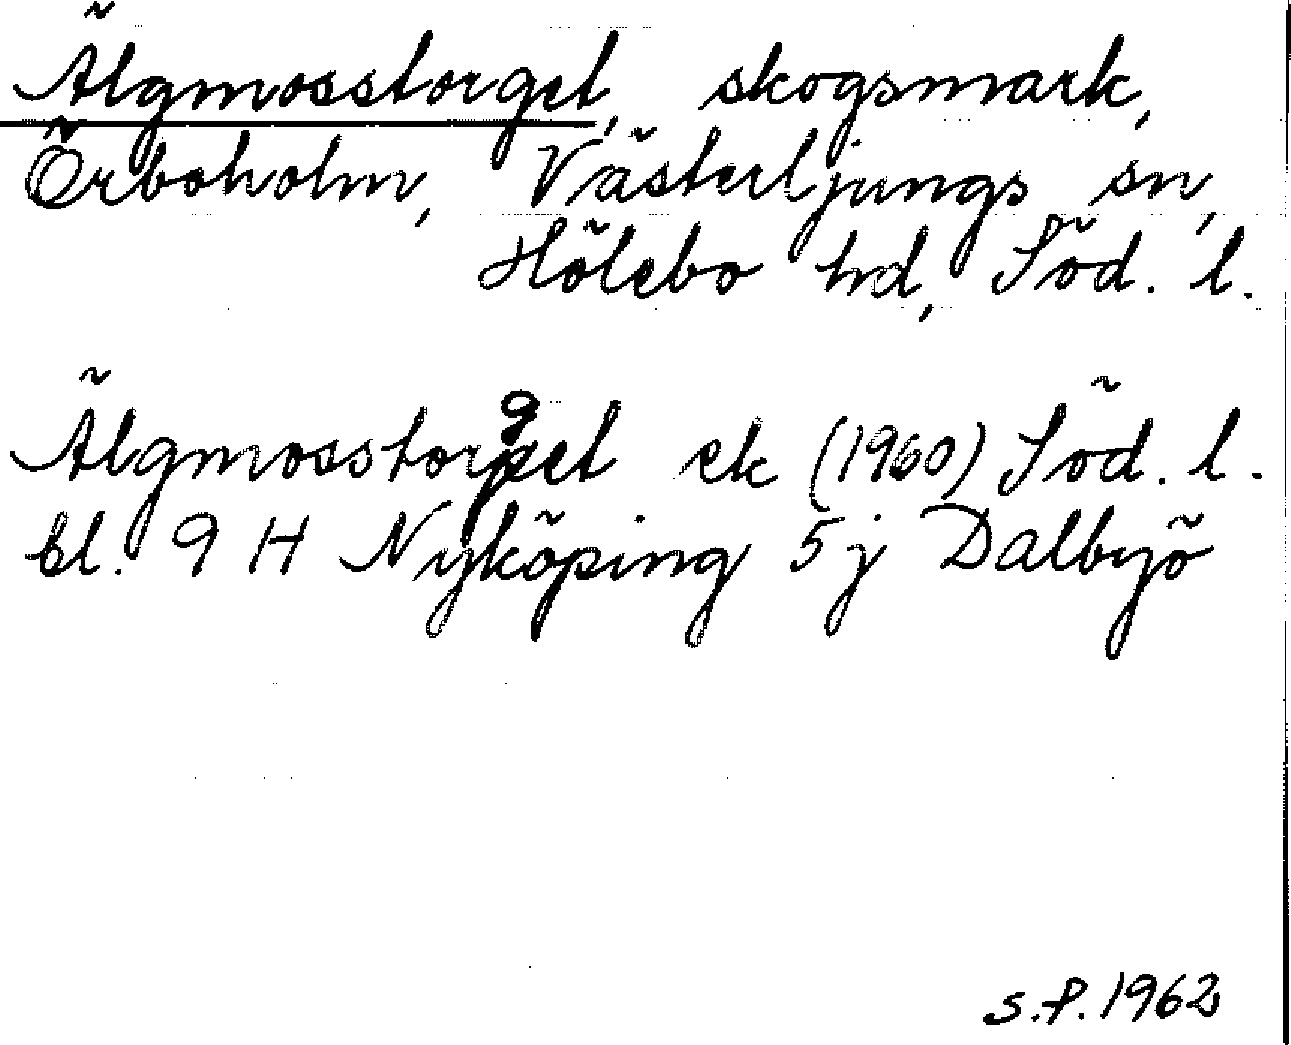 Älgmosstorget, skogsmark,
Örboholm, Västerljungs sn,
Hölebo hd, Söd. l.
Älgmosstorget ek (1960) Söd. l.
bl. 9 H Nyköping 5 j Dalbyö
S.P. 1962